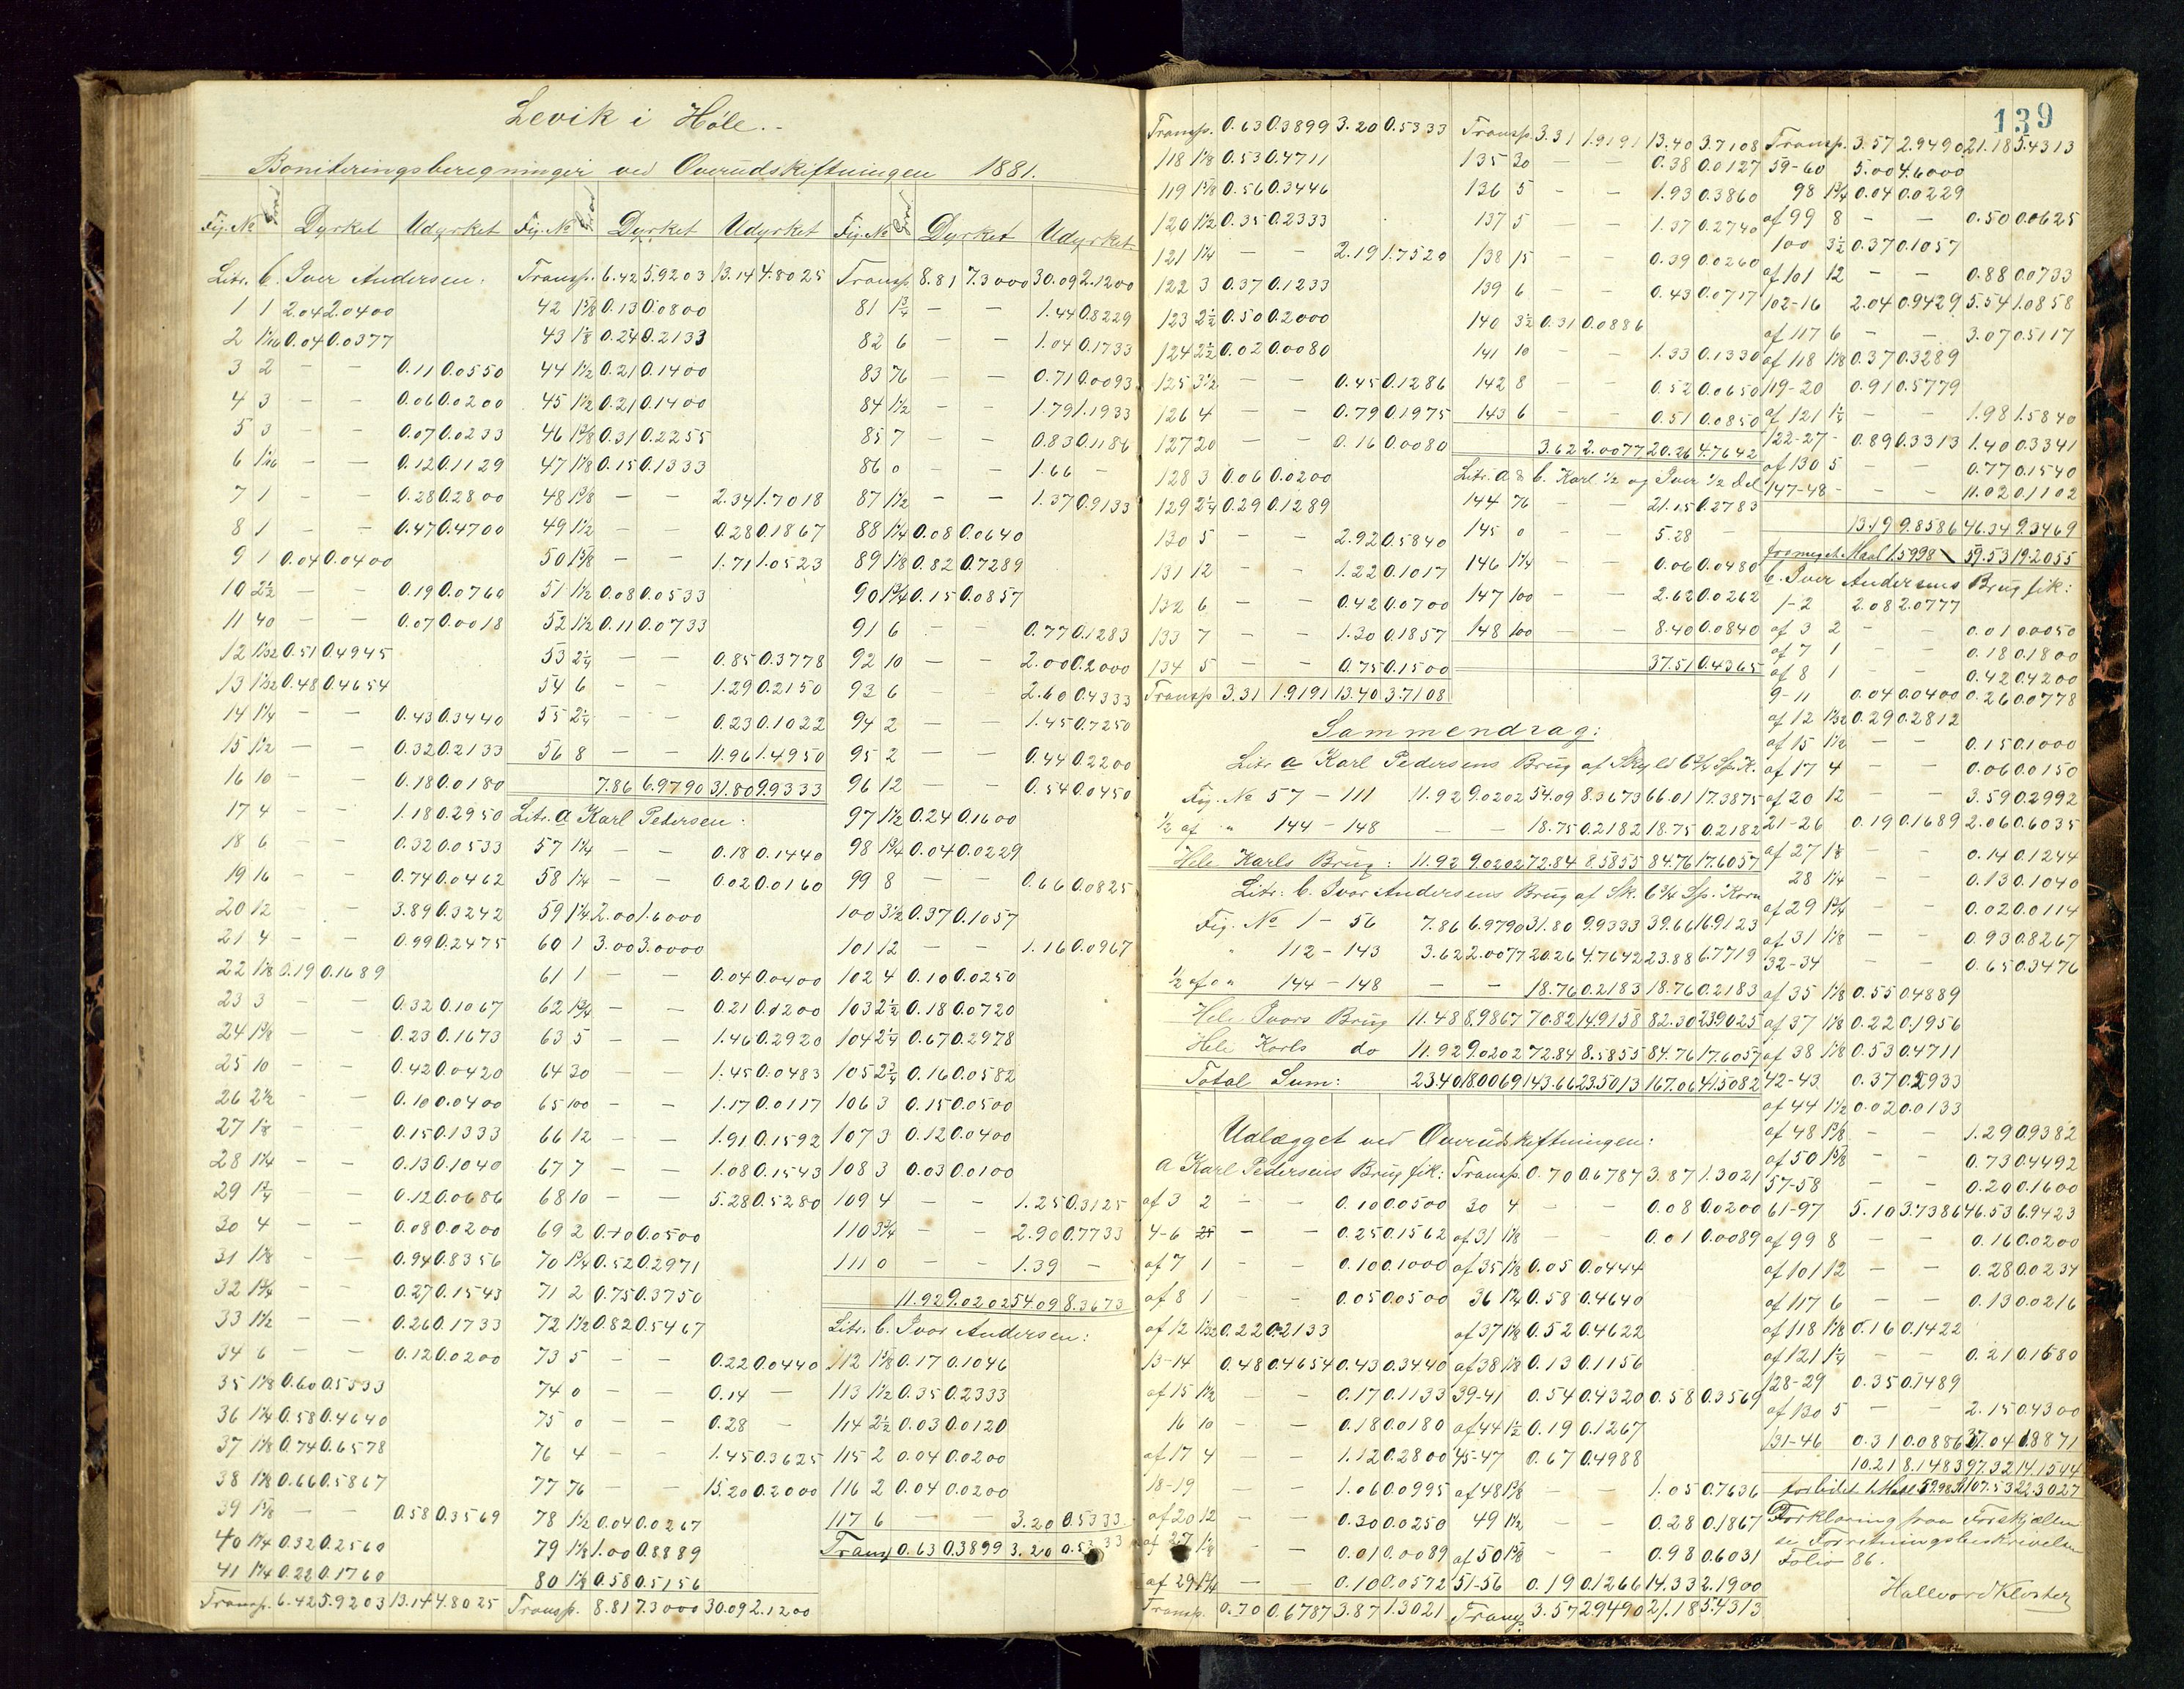 139
Levik i Høle.
Boniteringsberegninger ved Overudskiftningen 1881.
Fig. No Grad Dyrket Udyrket
Litr. b. Iver Andersen:
1 1 2.04 2.0400
2 1 1/16 0.04 0.0377
3 2 – – 0.11 0.0550
4 3 – – 0.06 0.0200
5 3 – – 0.07 0.0233
6 1 1/16 – – 0.12 0.1129
7 1 – – 0.28 0.2800
8 1 – – 0.47 0.4700
9 1 0.04 0.0400
10 2 1/2 – – 0.19 0.0760
11 40 – – 0.07 0.0018
12 1 1/32 0.51 0.4945
13 1 1/32 0.48 0.4654
14 1 1/4 – – 0.43 0.3440
15 1 1/2 – – 0.32 0.2133
16 10 – – 0.18 0.0180
17 4 – – 1.18 0.2950
18 6 – – 0.32 0.0533
19 16 – – 0.74 0.0462
20 12 – – 3.89 0.3242
21 4 – – 0.99 0.2475
22 1 1/8 0.19 0.1689
23 3 – – 0.32 0.1067
24 1 3/8 – – 0.23 0.1673
25 10 – – 0.42 0.0420
26 2 1/2 – – 0.10 0.0400
27 1 1/8 – – 0.15 0.1333
28 1 1/4 – – 0.13 0.1040
29 1 3/4 – – 0.12 0.0686
30 4 – – 0.08 0.0200
31 1 1/8 – – 0.94 0.8356
32 1 3/4 – – 0.27 0.1543
33 1 1/2 – – 0.26 0.1733
34 6 – – 0.12 0.0200
35 1 1/8 0.60 0.5333
36 1 1/4 0.58 0.4640
37 1 1/8 0.74 0.6578
38 1 1/8 0.66 0.5867
39 1 5/8 – – 0.58 0.3569
40 1 1/4 0.32 0.2560
41 1 1/4 0.22 0.1760
Transp. 6.42 5.9203 13.14 4.8025
Fig. No Grad Dyrket Udyrket
Transp. 6.42 5.9203 13.14 4.8025
42 1 5/8 0.13 0.0800
43 1 1/8 0.24 0.2133
44 1 1/2 0.21 0.1400
45 1 1/2 0.21 0.1400
46 1 3/8 0.31 0.2255
47 1 1/8 0.15 0.1333
48 1 3/8 – – 2.34 1.7018
49 1 1/2 – – 0.28 0.1867
50 1 5/8 – – 1.71 1.0523
51 1 1/2 0.08 0.0533
52 1 1/2 0.11 0.0733
53 2 1/4 – – 0.85 0.3778
54 6 – – 1.29 0.2150
55 2 1/4 – – 0.23 0.1022
56 8 – – 11.96 1.4950
7.86 6.9790 31.80 9.9333
Litr. a Karl Petersen:
57 1 1/4 – – 0.18 0.1440
58 1 1/4 – – 0.02 0.0160
59 1 1/4 2.00 1.6000
60 1 3.00 3.0000
61 1 – – 0.04 0.0400
62 1 3/4 – – 0.21 0.1200
63 5 – – 1.46 0.2920
64 30 – – 1.45 0.0483
65 100 – – 1.17 0.0117
66 12 – – 1.91 0.1592
67 7 – – 1.08 0.1543
68 10 – – 5.28 0.5280
69 2 0.10 0.0500
70 1 3/4 0.52 0.2971
71 2 0.75 0.3750
72 1 1/2 0.82 0.5467
73 5 – – 0.22 0.0440
74 0 – – 0.14 –
75 0 – – 0.28 –
76 4 – – 1.45 0.3625
77 76 – – 15.20 0.2000
78 1 1/2 0.04 0.0267
79 1 1/8 1.00 0.8889
80 1 1/8 0.58 0.5156
Transp. 8.81 7.3000 30.09 2.1200
Fig. No Grad Dyrket Udyrket
Transp 8.81 7.3000 30.09 2.1200
81 1 3/4 – – 1.44 0.8229
82 6 – – 1.04 0.1733
83 76 – – 0.71 0.0093
84 1 1/2 – – 1.79 1.1933
85 7 – – 0.83 0.1186
86 0 – – 1.66 –
87 1 1/2 – – 1.37 0.9133
88 1 1/4 0.08 0.0640
89 1 1/8 0.82 0.7289
90 1 3/4 0.15 0.0857
91 6 – – 0.77 0.1283
92 10 – – 2.00 0.2000
93 6 – – 2.60 0.4333
94 2 – – 1.45 0.7250
95 2 – – 0.44 0.2200
96 12 – – 0.54 0.0450
97 1 1/2 0.24 0.1600
98 1 3/4 0.04 0.0229
99 8 – – 0.66 0.0825
100 3 1/2 0.37 0.1057
101 12 – – 1.16 0.0967
102 4 0.10 0.0250
103 2 1/2 0.18 0.0720
104 2 1/4 0.67 0.2978
105 2 3/4 0.16 0.0582
106 3 0.15 0.0500
107 3 0.12 0.0400
108 3 0.03 0.0100
109 4 – – 1.25 0.3125
110 3 3/4 – – 2.90 0.7733
111 0 – – 1.39 –
11.92 9.0202 54.09 8.3673
Litr. b. Ivar Andersen:
112 1 5/8 0.17 0.1046
113 1 1/2 0.35 0.2333
114 2 1/2 0.03 0.0120
115 2 0.04 0.0200
116 2 0.04 0.0200
117 6 – – 3.20 0.5333
Transp 0.63 0.3899 3.20 0.5333
Transp. 0.63 0.3899 3.20 0.5333
118 1 1/8 0.53 0.4711
119 1 5/8 0.56 0.3446
120 1 1/2 0.35 0.2333
121 1 1/4 – – 2.19 1.7520
122 3 0.37 0.1233
123 2 1/2 0.50 0.2000
124 2 1/2 0.02 0.0080
125 3 1/2 – – 0.45 0.1286
126 4 – – 0.79 0.1975
127 20 – – 0.16 0.0080
128 3 0.06 0.0200
129 2 1/4 0.29 0.1289
130 5 – – 2.92 0.5840
131 12 – – 1.22 0.1017
132 6 – – 0.42 0.0700
133 7 – – 1.30 0.1857
134 5 – – 0.75 0.1500
Transp 3.31 1.9191 13.40 3.7108
Transp. 3.31 1.9191 13.40 3.7108
135 30 – – 0.38 0.0127
136 5 – – 1.93 0.3860
137 5 – – 1.37 0.2740
138 15 – – 0.39 0.0260
139 6 – – 0.43 0.0717
140 3 1/2 0.31 0.0886
141 10 – – 1.33 0.1330
142 8 – – 0.52 0.0650
143 6 – – 0.51 0.0850
3.62 2.0077 20.26 4.7642
Litr. a & b. Karl 1/2 og Iver 1/2 Del
144 76 – – 21.15 0.2783
145 0 – – 5.28 –
146 1 1/4 – – 0.06 0.0480
147 100 – – 2.62 0.0262
148 100 – – 8.40 0.0840
37.51 0.4365
Sammendrag:
Litr a Karl Pedersens Brug af Skyld 6 3/4 Sp. K.
Fig. No 57 – 111 11.92 9.0202 54.09 8.3673 66.01 17.3875
1/2 af " 144 – 148 – – 18.75 0.2182 18.75 0.2182
Hele Karls Brug: 11.92 9.0202 72.84 8.5855 84.76 17.6057
Litr: b. Ivar Andersens Brug af Sk. 6 3/4 Sp. Korn
Fig. No 1 – 56 7.86 6.9790 31.80 9.9333 39.66 16.9123
" 112 – 143 3.62 2.0077 20.26 4.7642 23.88 6.7719
1/2 af " 144 – 148 – – 18.76 0.2183 18.76 0.2183
Hele Ivars Brug 11.48 8.9867 70.82 14.9158 82.30 23.9025
Hele Karls do 11.92 9.0202 72.84 8.5855 84.76 17.6057
Total Sum: 23.40 18.0069 143.66 23.5013 167.06 41.5082
Udlægget ved Overudskiftningen:
a Karl Petersens Brug fik:
af 3 2 – – 0.10 0.0500
4-6 – – 0.25 0.1562
af 7 1 – – 0.10 0.1000
af 8 1 – – 0.05 0.0500
af 12 1 1/32 0.22 0.2133
13-14 0.48 0.4654 0.43 0.3440
af 15 1 1/2 – – 0.17 0.1133
16 10 – – 0.18 0.0180
af 17 4 – – 1.12 0.2800
18-19 – – 1.06 0.0995
af 20 12 – – 0.30 0.0250
af 27 1 1/8 – – 0.01 0.0089
af 29 1 3/4 – – 0.10 0.0572
Transp. 0.70 0.6787 3.87 1.3021
Transp. 0.70 0.6787 3.87 1.3021
30 4 – – 0.08 0.0200
af 31 1 1/8 – – 0.01 0.0089
af 35 1 1/8 0.05 0.0444
36 1 1/4 0.58 0.4640
af 37 1 1/8 0.52 0.4622
af 38 1 1/8 0.13 0.1156
39-41 0.54 0.4320 0.58 0.3569
af 44 1 1/2 0.19 0.1267
45-47 0.67 0.4988
af 48 1 3/8 – – 1.05 0.7636
49 1 1/2 – – 0.28 0.1867
af 50 1 5/8 – – 0.98 0.6031
51-56 0.19 0.1266 14.33 2.1900
Transp 3.57 2.9490 21.18 5.4313
Transp. 3.57 2.9490 21.18 5.4313
59-60 5.00 4.6000
98 1 3/4 0.04 0.0229
af 99 8 – – 0.50 0.0625
100 3 1/2 0.37 0.1057
af 101 12 – – 0.88 0.0733
102-16 2.04 0.9429 5.54 1.0858
af 117 6 – – 3.07 0.5117
af 118 1 1/8 0.37 0.3289
119-20 0.91 0.5779
af 121 1 1/4 – – 1.98 1.5840
122-27 0.89 0.3313 1.40 0.3341
af 130 5 – – 0.77 0.1540
147-48 – – 11.02 0.1102
13.19 9.8586 46.34 9.3469
formeget Maal 1.5998 59.53 19.2055
b. Iver Andersens Brug fik:
1-2 2.08 2.0777
af 3 2 – – 0.01 0.0050
af 7 1 – – 0.18 0.1800
af 8 1 – – 0.42 0.4200
9-11 0.04 0.0400 0.26 0.0778
af 12 1 1/32 0.29 0.2812
af 15 1 1/2 – – 0.15 0.1000
af 17 4 – – 0.06 0.0150
af 20 12 – – 3.59 0.2992
21-26 0.19 0.1689 2.06 0.6035
af 27 1 1/8 – – 0.14 0.1244
28 1 1/4 – – 0.13 0.1040
af 29 1 3/4 – – 0.02 0.0114
af 31 1 1/8 – – 0.93 0.8267
32-34 – – 0.65 0.3476
af 35 1 1/8 0.55 0.4889
af 37 1 1/8 0.22 0.1956
af 38 1 1/8 0.53 0.4711
42-43 0.37 0.2933
af 44 1 1/2 0.02 0.0133
af 48 1 3/8 – – 1.29 0.9382
af 50 1 5/8 – – 0.73 0.4492
57-58 – – 0.20 0.1600
61-97 5.10 3.7386 46.53 6.9423
af 99 8 – – 0.16 0.0200
af 101 12 – – 0.28 0.0234
af 117 6 – – 0.13 0.0216
af 118 1 1/8 0.16 0.1422
af 121 1 1/4 – – 0.21 0.1680
128-29 0.35 0.1489
af 130 5 – – 2.15 0.4300
131-46 0.31 0.0886 37.04 1.8871
10.21 8.1483 97.32 14.1544
forlidet i Maal 107.53 22.3027
Forklaring paa Forskjellen
se Forretningsbeskrivelsen
Folio 86.
Hallvord Kloster